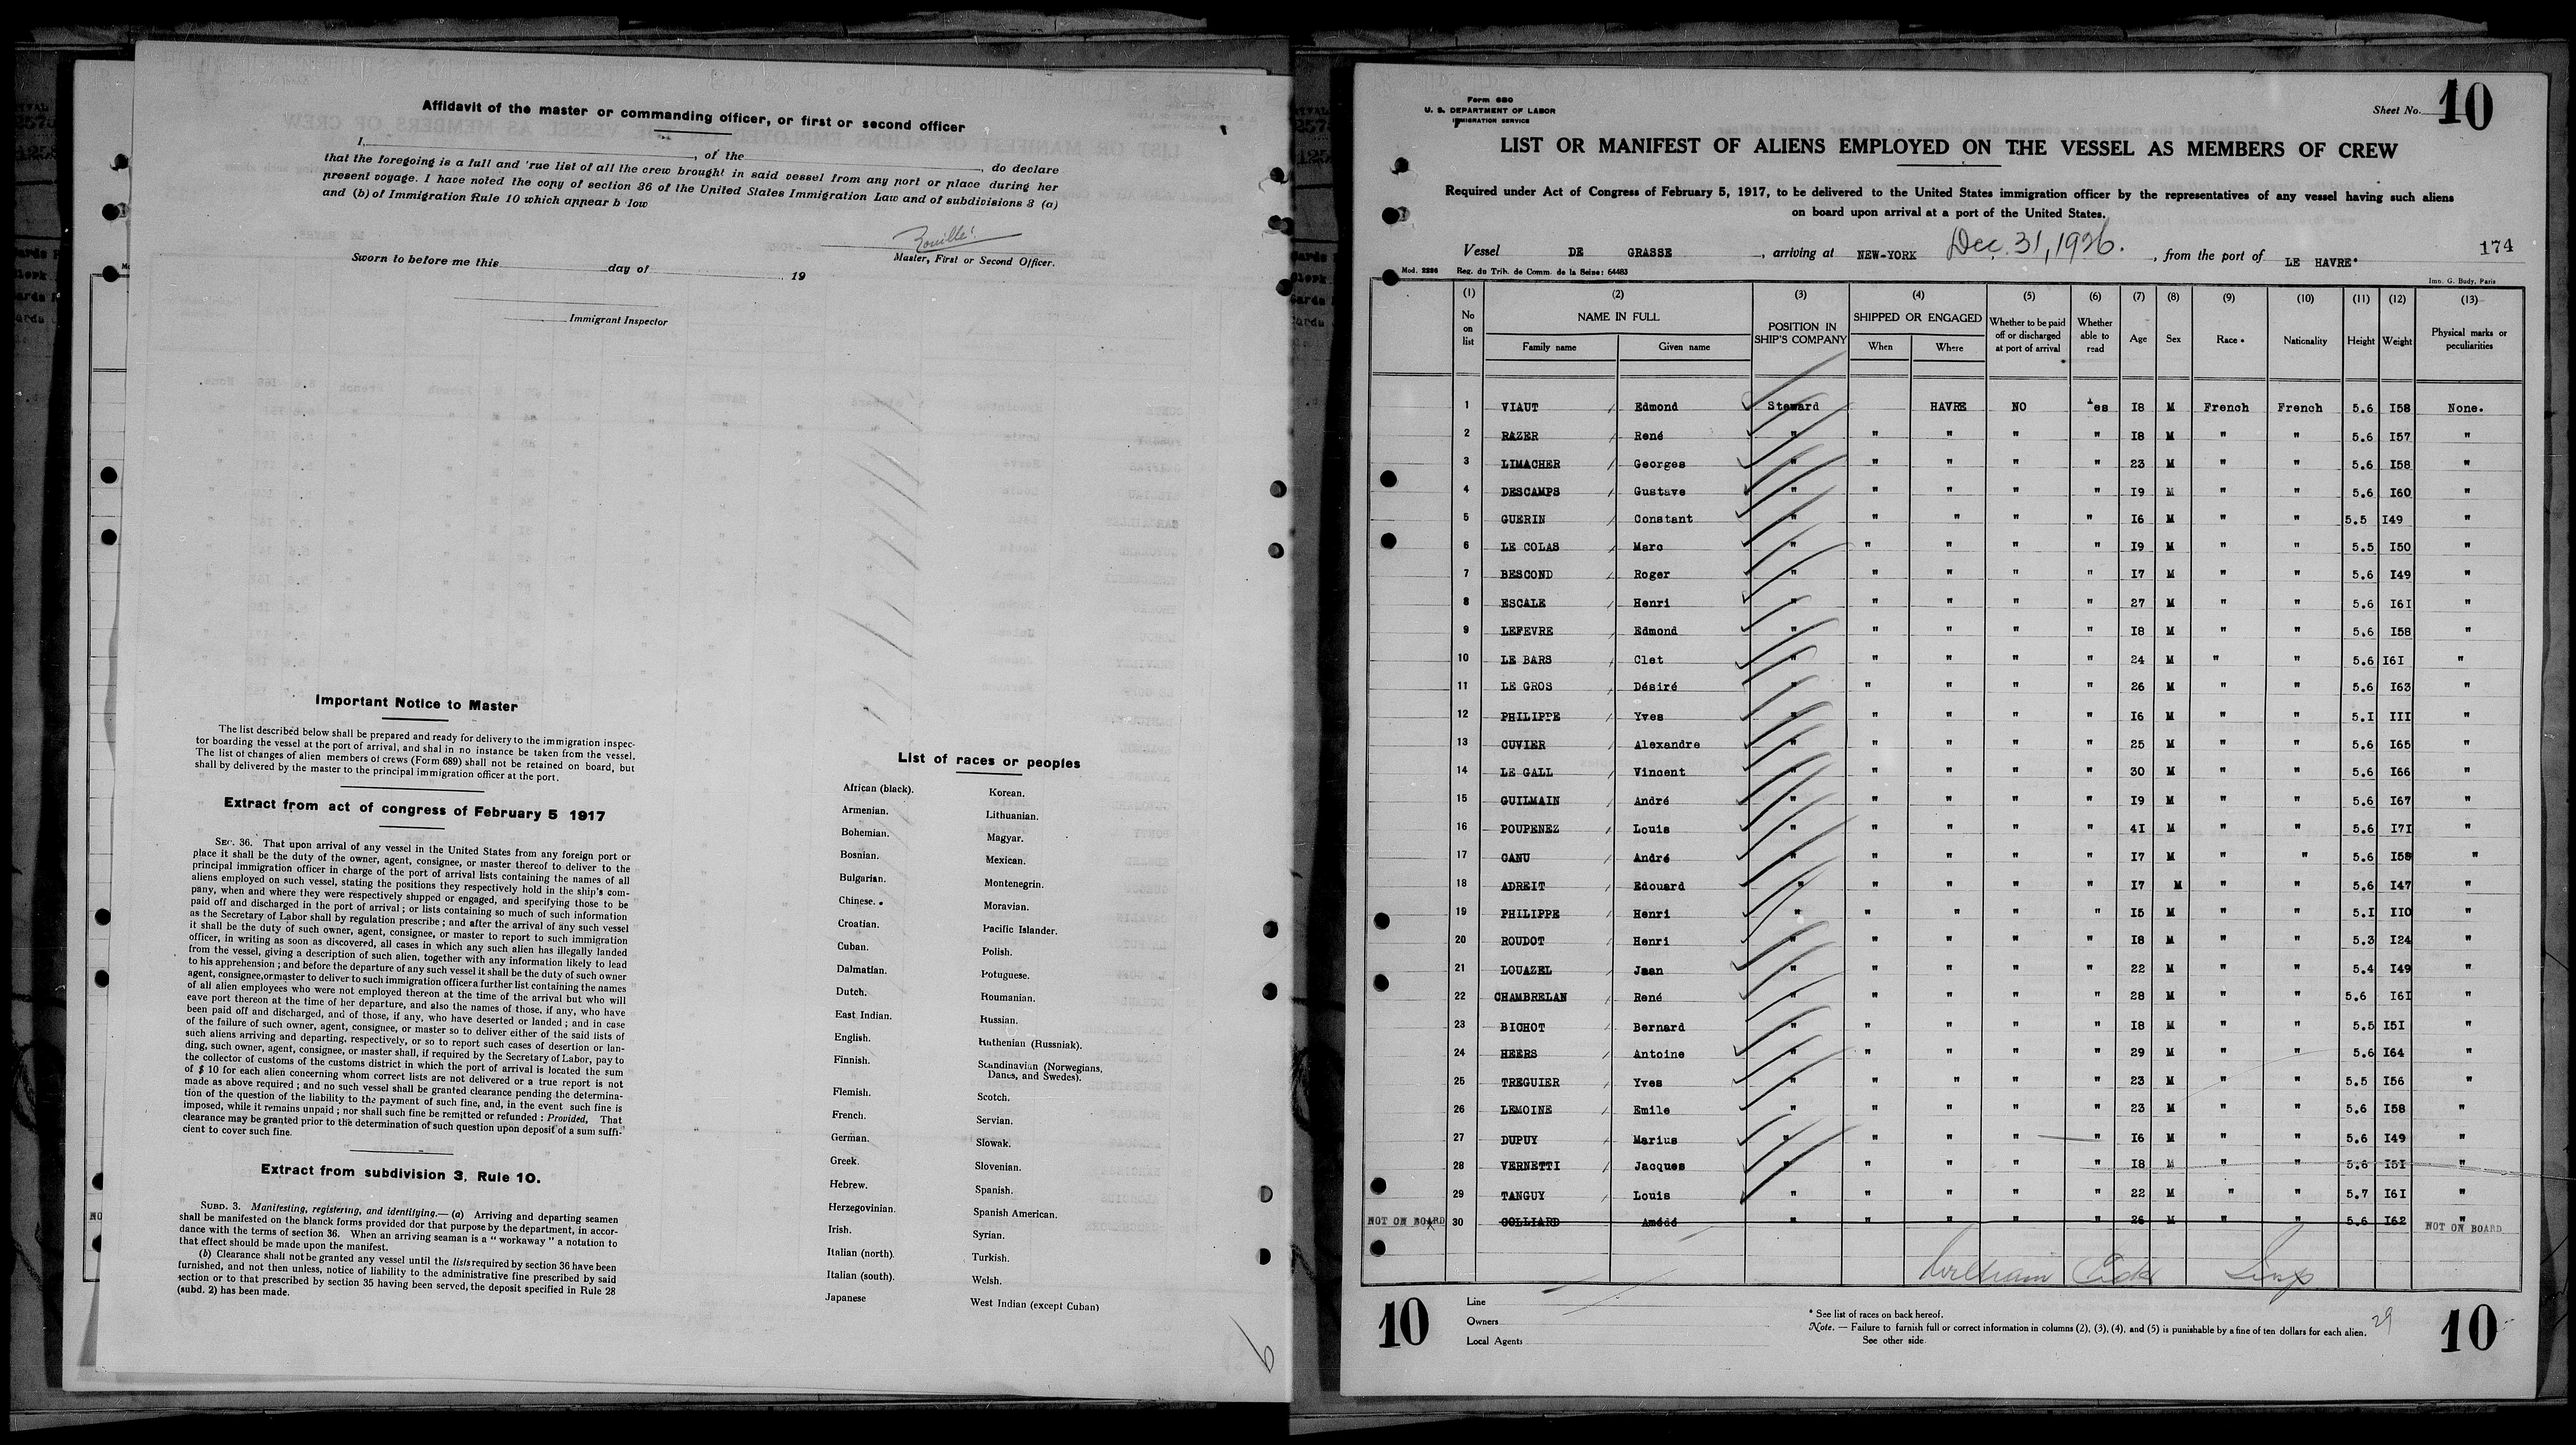 Affidavit of the master or commanding officer, or first or second officer
I, , of the , do declare
that the foregoing is a full and 'rue list of all the crew brought in said vessel from any port or place during her
present voyage. I have noted the copy of section 36 of the United States Immigration Law and of subdivisions 3 (a)
and (b) of Immigration Rule 10 which appear b low
Sworn to before me this day of 19
Master, First or Second Officer.
Immigrant Inspector
Important Notice to Master
The list described below shall be prepared and ready for delivery to the immigration inspec-
tor boarding the vessel at the port of arrival, and shal in no instance be taken from the vessel.
The list of changes of alien members of crews (Form 689) shall not be retained on board, but
shall by delivered by the master to the principal immigration officer at the port.
Extract from act of congress of February 5 1917
SEC. 36. That upon arrival of any vessel in the United States from any foreign port or
place it shall be the duty of the owner, agent, consignee, or master thereof to deliver to the
principal immigration officer in charge of the port of arrival lists containing the names of all
aliens employed on such vessel, stating the positions they respectively hold in the ship's com-
pany, when and where they were respectively shipped or engaged, and specifying those to be
paid off and discharged in the port of arrival ; or lists containing so much of such information
as the Secretary of Labor shall by regulation prescribe ; and after the arrival of any such vessel
it shall be the duty of such owner, agent, consignee, or master to report to such immigration
officer, in writing as soon as discovered, all cases in which any such alien has illegally landed
from the vessel, giving a description of such alien, together with any information likely to lead
to his apprehension ; and before the departure of any such vessel it shall be the duty of such owner
agent, consignee, ormaster to deliver to such immigration officer a further list containing the names
of all alien employees who were not employed thereon at the time of the arrival but who will
eave port thereon at the time of her departure, and also the names of those, if any, who have
been paid off and discharged, and of those, if any, who have deserted or landed ; and in case
of the failure of such owner, agent, consignee, or master so to deliver either of the said lists of
such aliens arriving and departing, respectively, or so to report such cases of desertion or lan-
ding, such owner, agent, consignee, or master shall, if required by the Secretary of Labor, pay to
the collector of customs of the customs district in which the port of arrival is located the sum
of $ 10 for each alien concerning whom correct lists are not delivered or a true report is not
made as above required ; and no such vessel shall be granted clearance pending the determina-
tion of the question of the liability to the payment of such fine, and, in the event such fine is
imposed, while it remains unpaid ; nor shall such fine be remitted or refunded : Provided, That
clearance may be granted prior to the determination of such question upon deposit of a sum suffi-
cient to cover such fine.
Extract from subdivision 3, Rule 10.
SUBD. 3. Manifesting, registering, and identifying.— (a) Arriving and departing seamen
shall be manifested on the blanck forms provided dor that purpose by the department, in accor-
dance with the terms of section 36. When an arriving seaman is a " workaway " a notation to
that effect should be made upon the manifest.
(b) Clearance shall not be granted any vessel until the lists required by section 36 have been
furnished, and not then unless, notice of liability to the administrative fine prescribed by said
section or to that prescribed by section 35 having been served, the deposit specified in Rule 28
(subd. 2) has been made.
List of races or peoples
African (black). Korean.
Armenian. Lithuanian.
Bohemian. Magyar.
Bosnian. Mexican.
Bulgarian. Montenegrin.
Chinese. Moravian.
Croatian. Pacific Islander.
Cuban. Polish.
Dalmatian. Potuguese.
Dutch. Roumanian.
East Indian. Russian.
English. Ruthenian (Russniak).
Finnish. Scandinavian (Norwegians,
Danes, and Swedes).
Flemish. Scotch.
French. Servian.
German. Slowak.
Greek. Slovenian.
Hebrew. Spanish.
Herzegovinian. Spanish American.
Irish. Syrian.
Italian (north). Turkish.
Italian (south). Welsh.
Japanese West Indian (except Cuban)
Form 680
U. S. DEPARTMENT OF LABOR
IMMIGRATION SERVICE
Sheet No. 10
LIST OR MANIFEST OF ALIENS EMPLOYED ON THE VESSEL AS MEMBERS OF CREW
Required under Act of Congress of February 5, 1917, to be delivered to the United States immigration officer by the representatives of any vessel having such aliens
on board upon arrival at a port of the United States.
Vessel DE GRASSE , arriving at NEW-YORK Dec. 31, 1926. , from the port of LE HAVRE. 174
Mod. 2286 Reg. du Trib. de Comm. de la Seine: 64483 Imp. G. Budy, Paris
(1) (2) (3) (4) (5) (6) (7) (8) (9) (10) (11) (12) (13)
No on list NAME IN FULL Family name Given name POSITION IN SHIP'S COMPANY SHIPPED OR ENGAGED When Where Whether to be paid off or discharged at port of arrival Whether able to read Age Sex Race Nationality Height Weight Physical marks or peculiarities
1 VIAUT Edmond Steward HAVRE NO Yes I8 M French French 5.6 I58 None.
2 RAZER René " " " " " I8 M " " 5.6 I57 "
3 LIMACHER Georges " " " " " 23 M " " 5.6 I58 "
4 DESCAMPS Gustave " " " " " I9 M " " 5.6 I60 "
5 GUERIN Constant " " " " " I6 M " " 5.5 I49 "
6 LE COLAS Marc " " " " " I9 M " " 5.5 I50 "
7 BESCOND Roger " " " " " I7 M " " 5.6 I49 "
8 ESCALE Henri " " " " " 27 M " " 5.6 I6I "
9 LEFEVRE Edmond " " " " " I8 M " " 5.6 I58 "
10 LE BARS Clet " " " " " 24 M " " 5.6 I6I "
11 LE GROS Désiré " " " " " 26 M " " 5.6 I63 "
12 PHILIPPE Yves " " " " " I6 M " " 5.I III "
13 CUVIER Alexandre " " " " " 25 M " " 5.6 I65 "
14 LE GALL Vincent " " " " " 30 M " " 5.6 I66 "
15 GUILMAIN André " " " " " I9 M " " 5.6 I67 "
16 POUPENEZ Louis " " " " " 4I M " " 5.6 I7I "
17 CANU André " " " " " I7 M " " 5.6 I58 "
18 ADREIT Edouard " " " " " I7 M " " 5.6 I47 "
19 PHILIPPE Henri " " " " " I5 M " " 5.I II0 "
20 ROUDOT Henri " " " " " I8 M " " 5.3 I24 "
21 LOUAZEL Jean " " " " " 22 M " " 5.4 I49 "
22 CHAMBRELAN René " " " " " 28 M " " 5.6 I6I "
23 BICHOT Bernard " " " " " I8 M " " 5.5 I5I "
24 HEERS Antoine " " " " " 29 M " " 5.6 I64 "
25 TREGUIER Yves " " " " " 23 M " " 5.5 I56 "
26 LEMOINE Emile " " " " " 23 M " " 5.6 I58 "
27 DUPUY Marius " " " " " I6 M " " 5.6 I49 "
28 VERNETTI Jacques " " " " " I8 M " " 5.6 I5I "
29 TANGUY Louis " " " " " 22 M " " 5.7 I6I "
NOT ON BOARD 30 COLLIARD Amédé " " " " " 26 M " " 5.6 I62 " NOT ON BOARD
William
10 Line
Owners
Local Agents
* See list of races on back hereof.
Note. — Failure to furnish full or correct information in columns (2), (3), (4), and (5) is punishable by a fine of ten dollars for each alien.
See other side
29
10